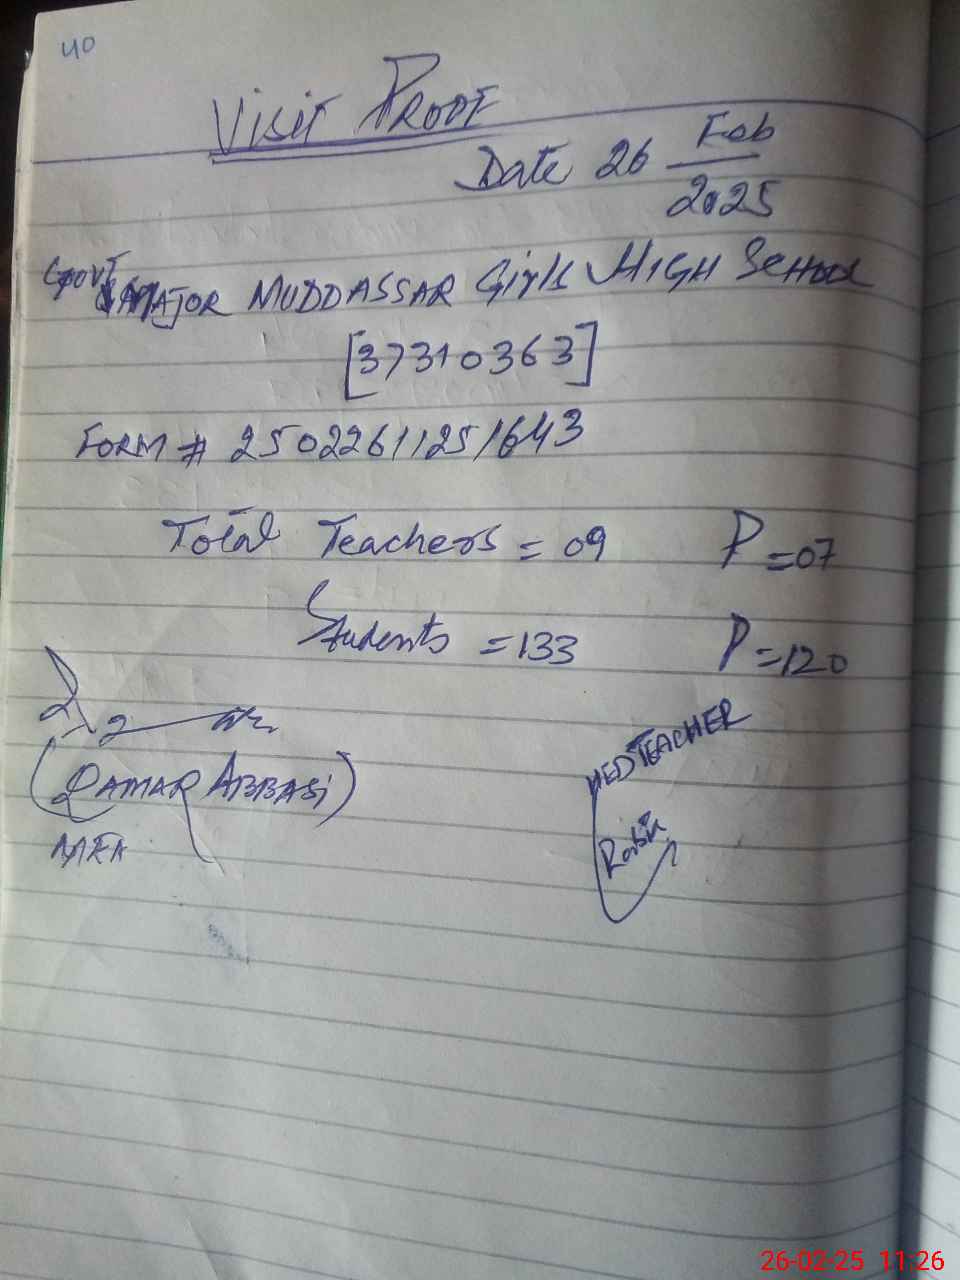 40
VISIT PROOF
Date 26 Feb
2025
GOVT MAJOR MUDDASSAR Girls HIGH SCHOOL
[37310363]
FORM # 25022611251643
Total Teachers = 09 P = 07
Students = 133 P = 120
(QAMAR ABBASI)
MEA
HEDTEACHER
Rabia
26-02-25 11:26